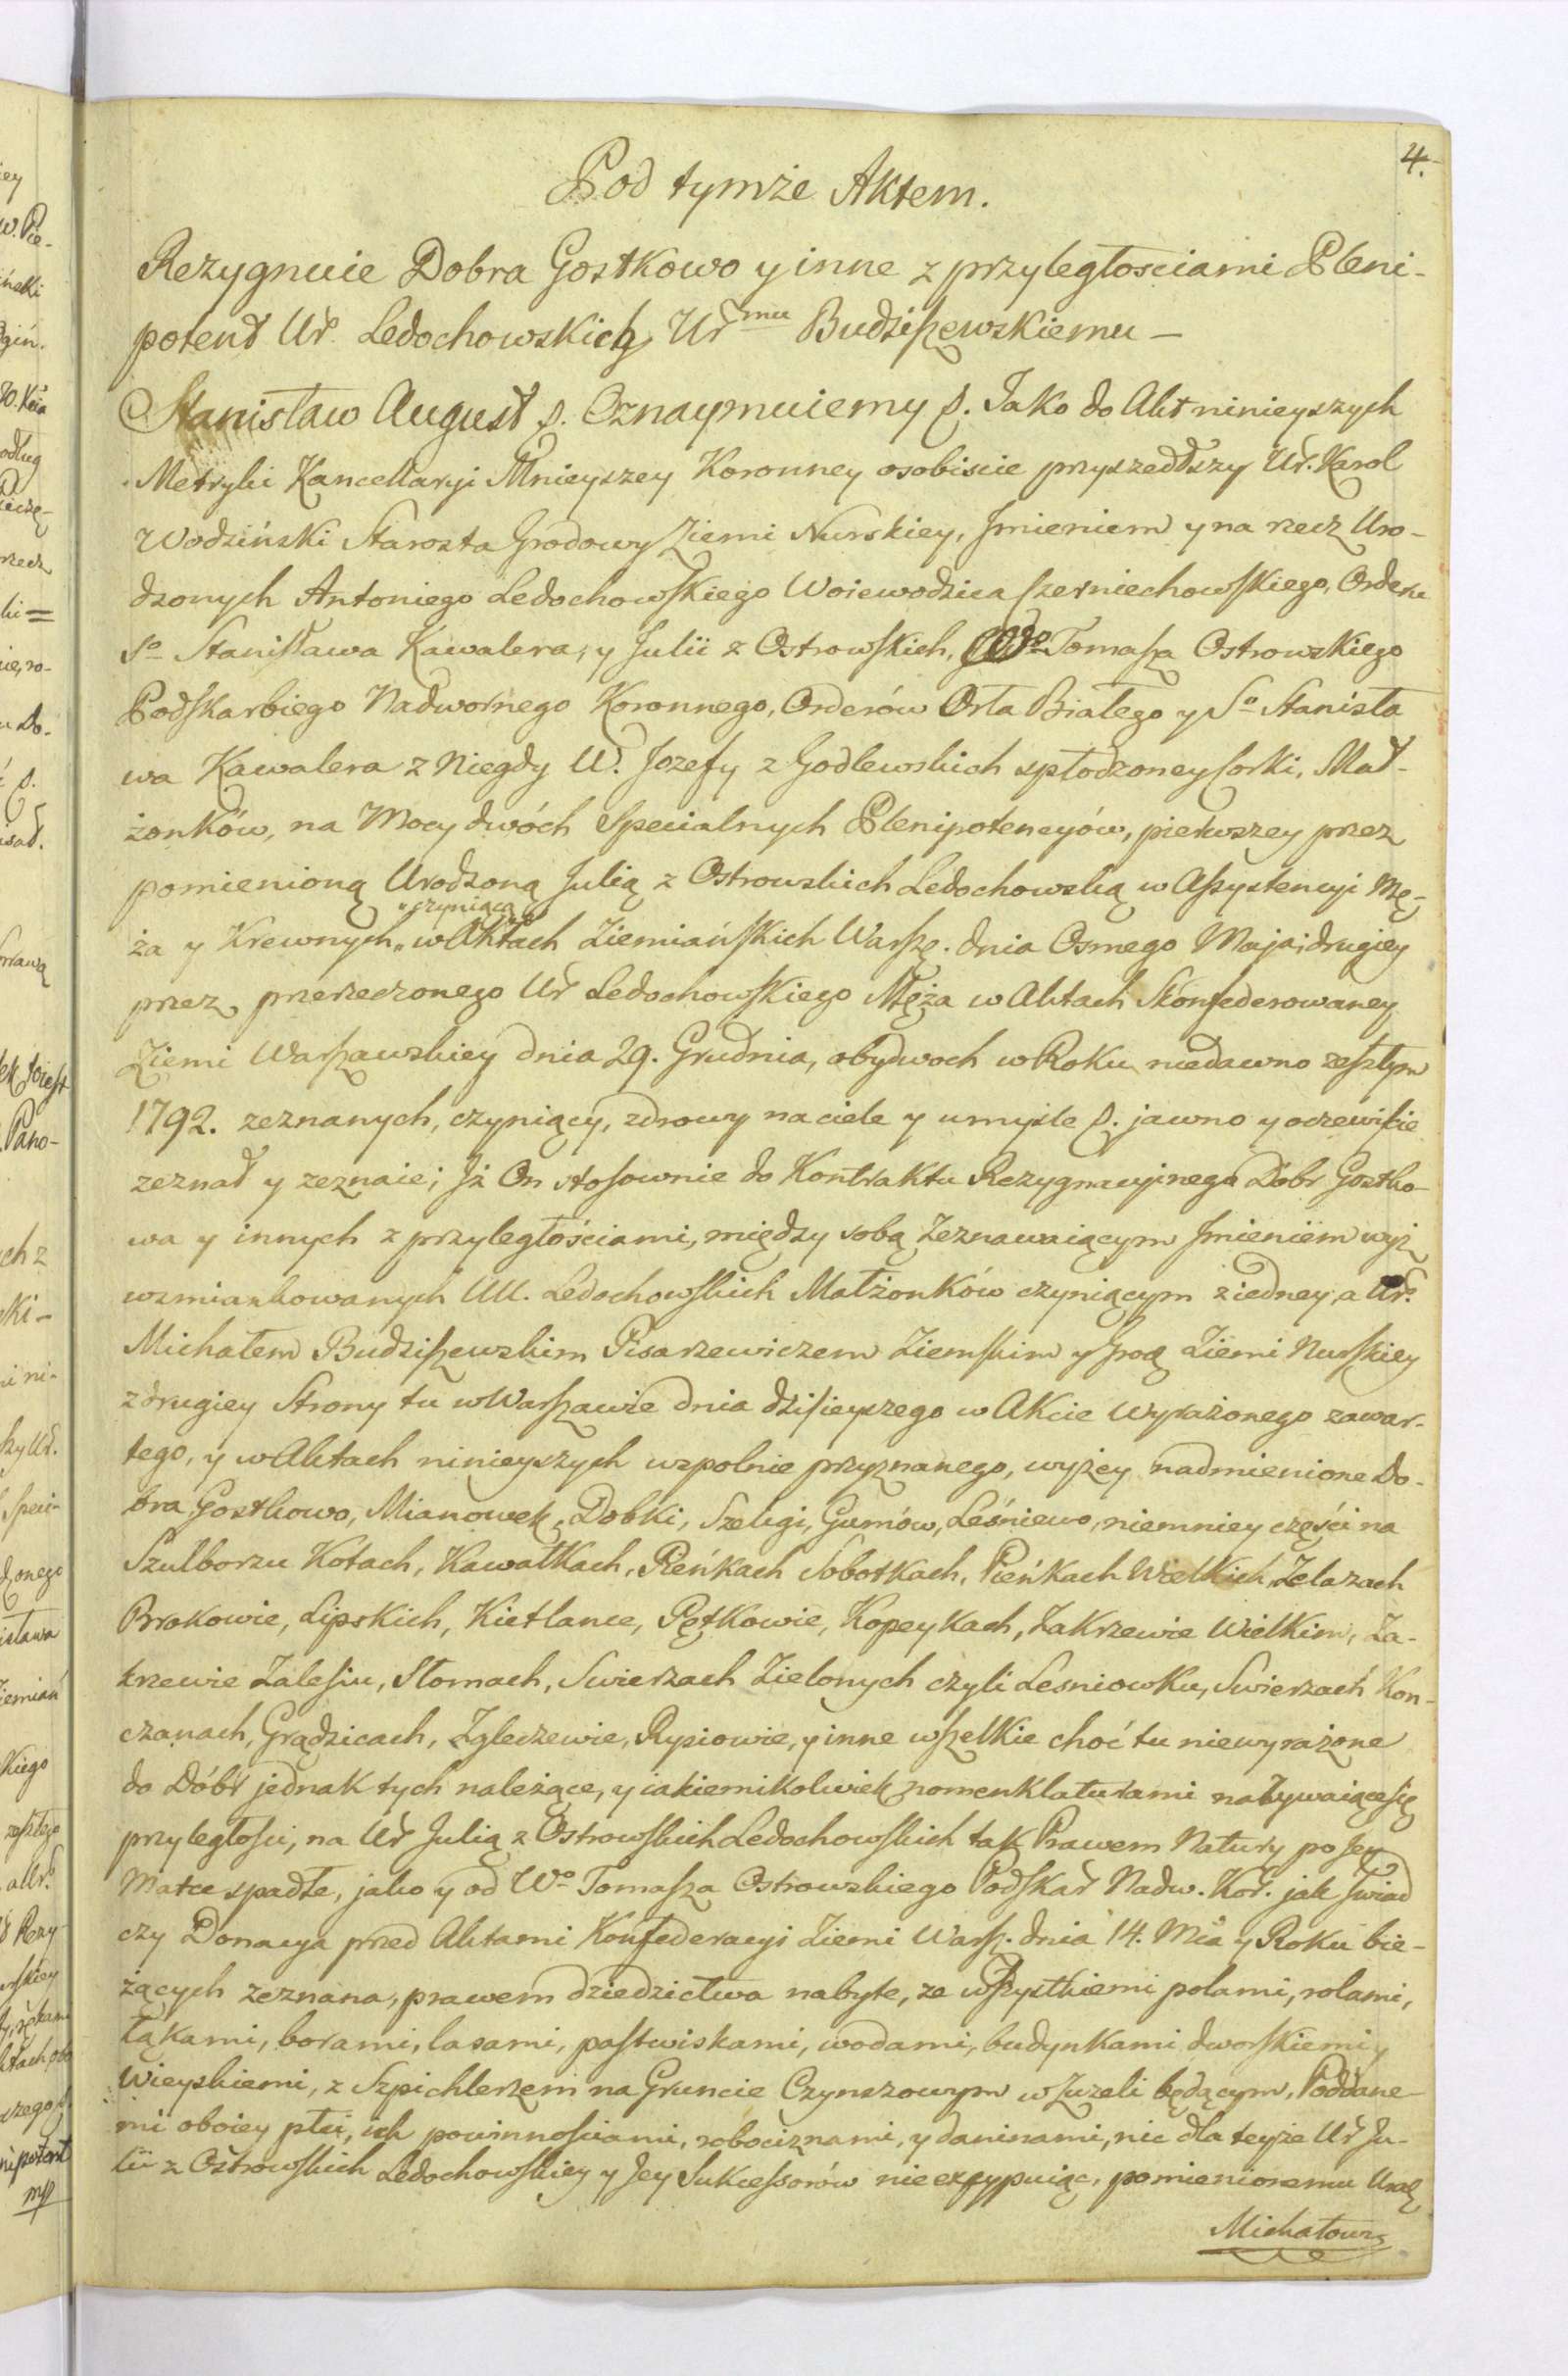 4.
Pod tymże Aktem.
Rezygnuie Dobra Gostkowo y inne z przyległosciami Pleni-
potent Ur. Ledochowskich Ur mu Budziszewskiemu —
Stanisław August p. Oznaymuiemy p. Jako do Akt ninieyszych
Metryki Kancellaryi Mnieyszey Koronney osobiscie przyszedłszy Ur. Karol
Wodziński Starosta Grodowy Ziemi Nurskiey, Jmieniem y na rzecz Uro-
dzonych Antoniego Ledochowskiego Woiewodzica Czerniechowskiego, Orderu
So Stanisława Kawalera, y Julii z Ostrowskich, Wo Tomasza Ostrowskiego
Podskarbiego Nadwornego Koronnego, Orderów Orła Białego y So Stanisła
wa Kawalera z Niegdy W. Jozefy z Godlewskich spłodzoney Corki, Mał-
żonków, na Mocy dwóch Specialnych Plenipotencyów, pierwszey przez
pomienioną Urodzoną Julią z Ostrowskich Ledochowską w Assystencyi Mę-
ża y Krewnych „czyniącą w Aktach Ziemiańskich Warsz. dnia Osmego Maja; drugiey
przez przerzeczonego Ur Ledochowskiego Męża w Aktach Skonfederowaney
Ziemi Warszawskiey dnia 29. Grudnia, obydwoch w Roku niedawno zeszłym
1792. zeznanych, czyniący, zdrowy na ciele y umysle p. jawno y oczewiscie
zeznał y zeznaie; Jż On stosownie do Kontraktu Rezygnacyinego Dobr Gostko-
wa y innych z przyległościami, między sobą Zeznawaiącym Jmieniem wyż
wzmiankowanych UU. Ledochowskich Małżonków czyniącym z iedney, a Ur.
Michałem Budziszewskim Pisarzewiczem Ziemskim y Grod Ziemi Nurskiey
z drugiey Strony tu w Warszawie dnia dzisieyszego w Akcie wyrażonego zawar-
tego, y w Aktach ninieyszych wspolnie przyznanego, wyżey nadmienione Do-
bra Gostkowo, Mianowek, Dobki, Szeligi, Gumów, Leśniewo, niemniey części na
Szulborzu Kotach, Kawałkach, Pieńkach Sobotkach, Pieńkach Wielkich, Zelazach
Prokowie, Lipskich, Kietlance, Pętkowie, Kopeykach, Zakrzewie Wielkim, Za-
krzewie Zalesiu, Słomach, Swierzach Zielonych czyli Lesniowku, Swierzach Kon-
czanach, Grądzicach, Zgleczewie, Rysiowie, y inne wszelkie choć tu niewyrażone
do Dóbr jednak tych należące, y iakiemikolwiek nomenklaturami nazywaiące się
przyległosci, na Ur Julią z Ostrowskich Ledochowskich tak Prawem Natury po Jey
Matce spadłe, jako y od Wo Tomasza Ostrowskiego Podskar Nadw. Kor. jak swiad
czy Donacya przed Aktami Konfederacyi Ziemi Warsz. dnia 14. Mca y Roku bie-
żących zeznana, prawem dziedzictwa nabyte, ze wszystkiemi polami, rolami,
łąkami, borami, lasami, pastwiskami, wodami, budynkami dworskiemi y
Wieyskiemi, z Szpichlerzem na Gruncie Czynszowym w Zuzeli będącym, Poddane-
mi oboiey płci, ich powinnosciami, robociznami, y daninami, nic dla teyże Ur Ju-
lii z Ostrowskich Ledochowskiey y Jey Sukcessorów nieexcypuiąc, pomienionemu Urodz
Michałowi